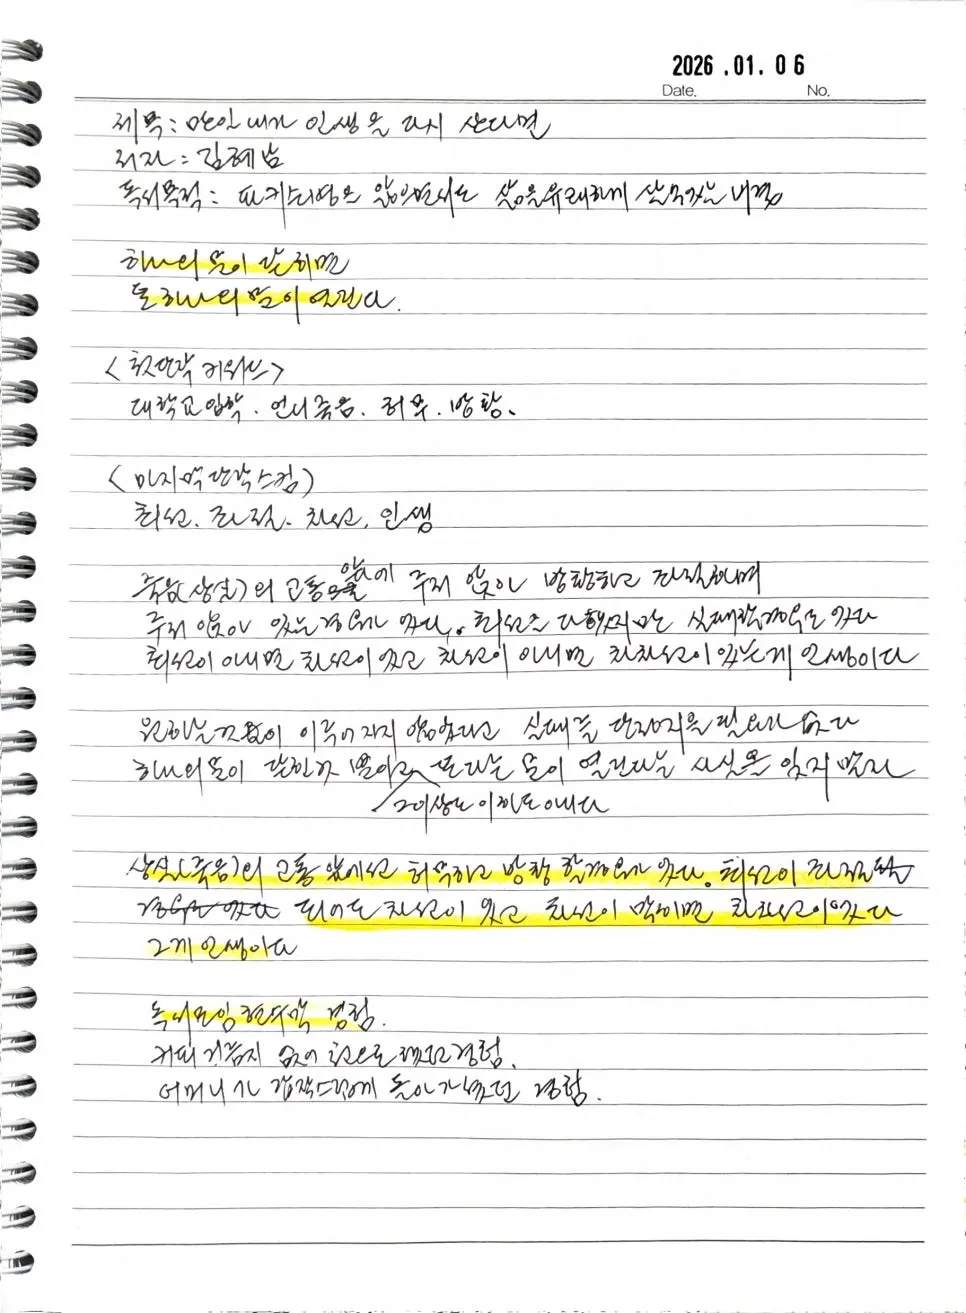 2026.01.06
Date. No.
제목 : 만약 내가 인생을 다시 산다면
저자 : 김혜남
독서목적 : 파킨슨병을 앓으면서도 삶을 유쾌하게 살 수 있는 비결
하나의 문이 닫히면
또 하나의 문이 열린다.
<첫단락 키워드>
대학교 입학. 언니 죽음. 허무. 방황.
<마지막 단락 스킴>
최선. 차선. 인생
죽음(상실)의 고통 앞에 주저 앉아 방황하고
주저 앉아 있는 경우가 있다. 최선을 다했지만 실패할 경우도 있다
최선이 아니면 차선이 있고 차선이 아니면 차차선이 있는게 인생이다
원하는 이루어지지 않았다고 실패를 단정지을 필요는 없다
하나의 문이 닫힌다 또 다른 문이 열린다는 사실을 잊지 말자
그 이상도 이하도 아니다
상실(죽음)의 고통 앞에서 허덕이고 방황 할 경우가 있다. 최선이
경우가 있다 되어도 차선이 있고 차선이 막히면 차차선이 있다
그게 인생이다
독서모임 경험.
없이 경험.
어머니가 갑작스럽게 돌아가셨던 경험.